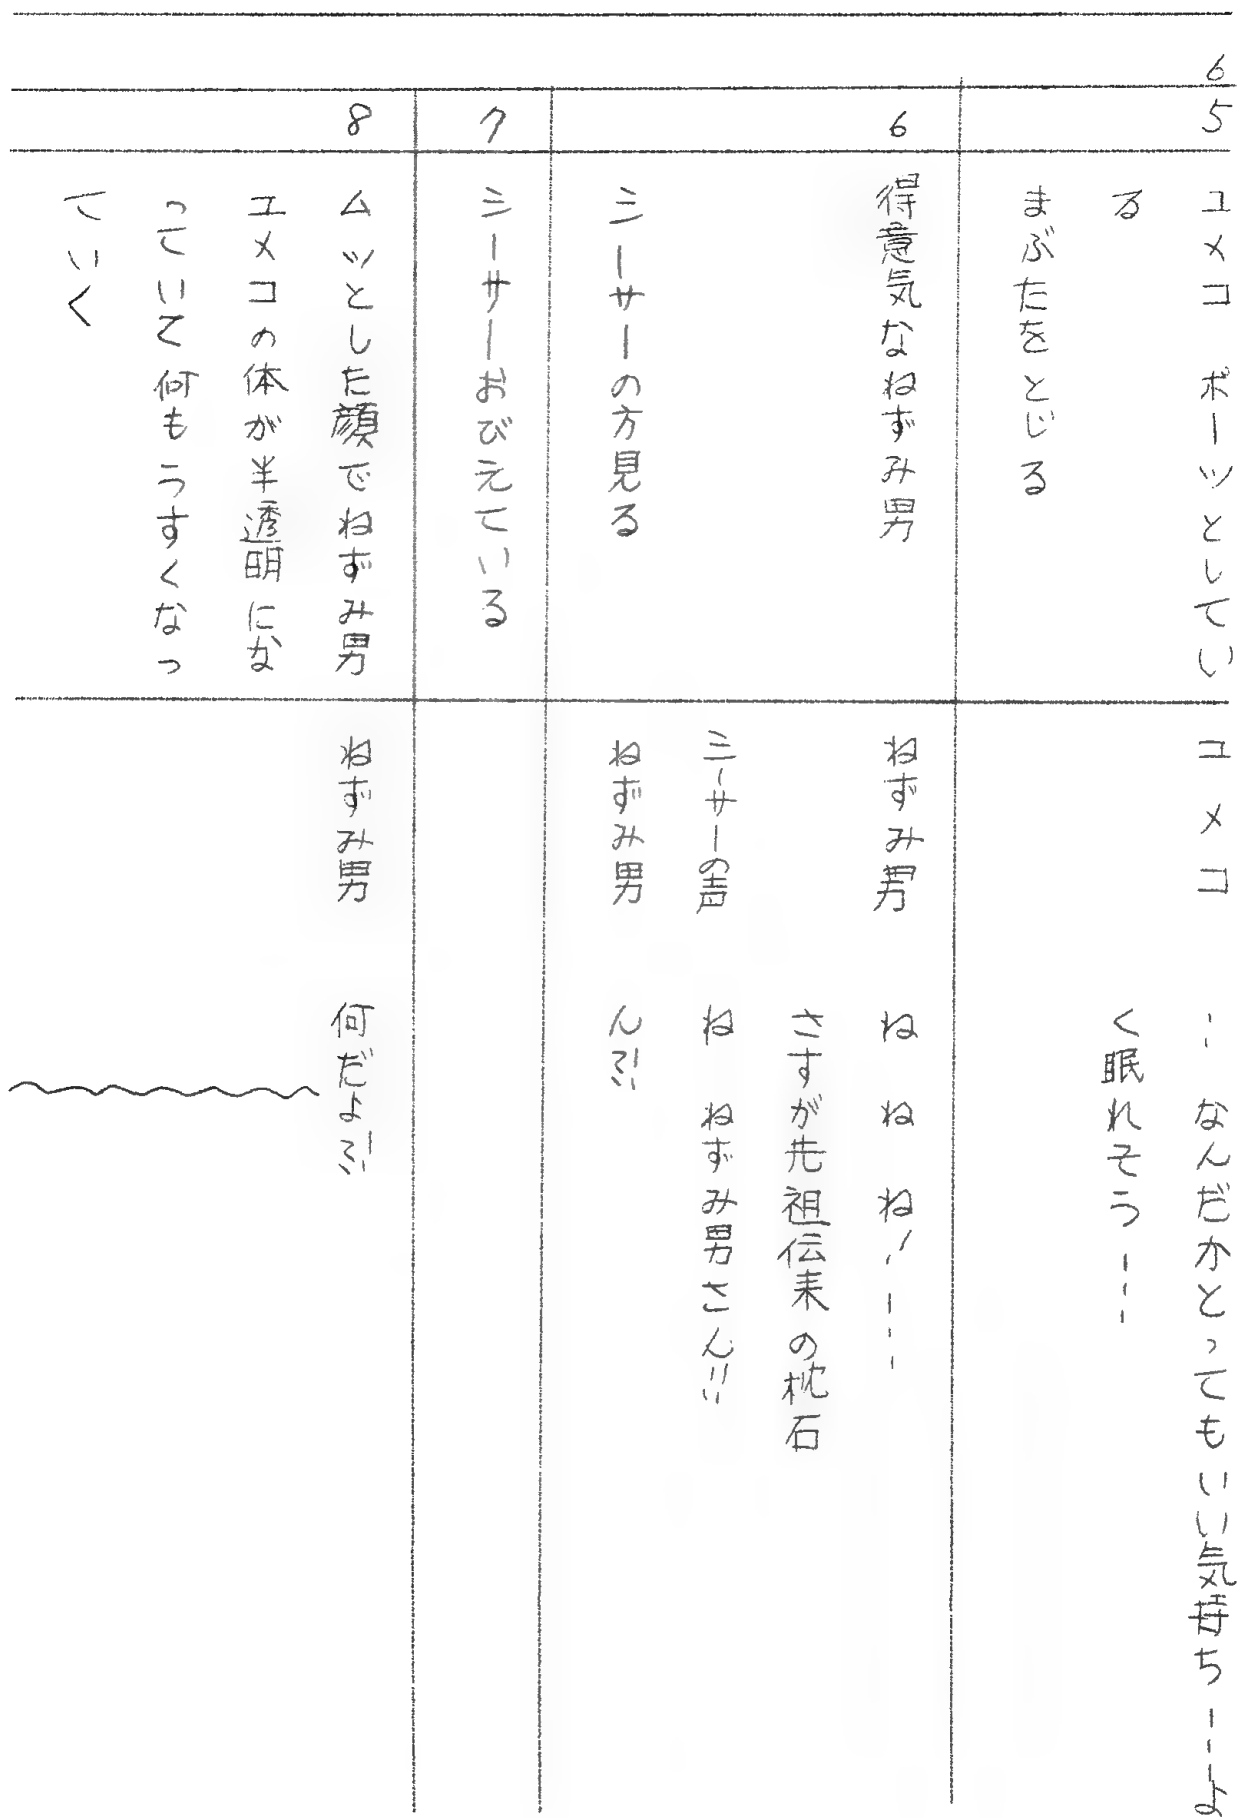 6
5
ユメコ ボーッとしてい
る
まぶたをとじる
ユメコ
…なんだかとってもいい気持ち…よ
く眠れそう…
6
得意気なねずみ男
シーサーの方見る
ねずみ男
ね ね ね!…
さすが先祖伝来の枕石
シーサーの声
ね ねずみ男さん!!
ねずみ男
ん?!
7
シーサーおびえている
8
ムッとした顔でねずみ男
ユメコの体が半透明にな
っていて何もうすくなっ
ていく
ねずみ男
何だよ?!